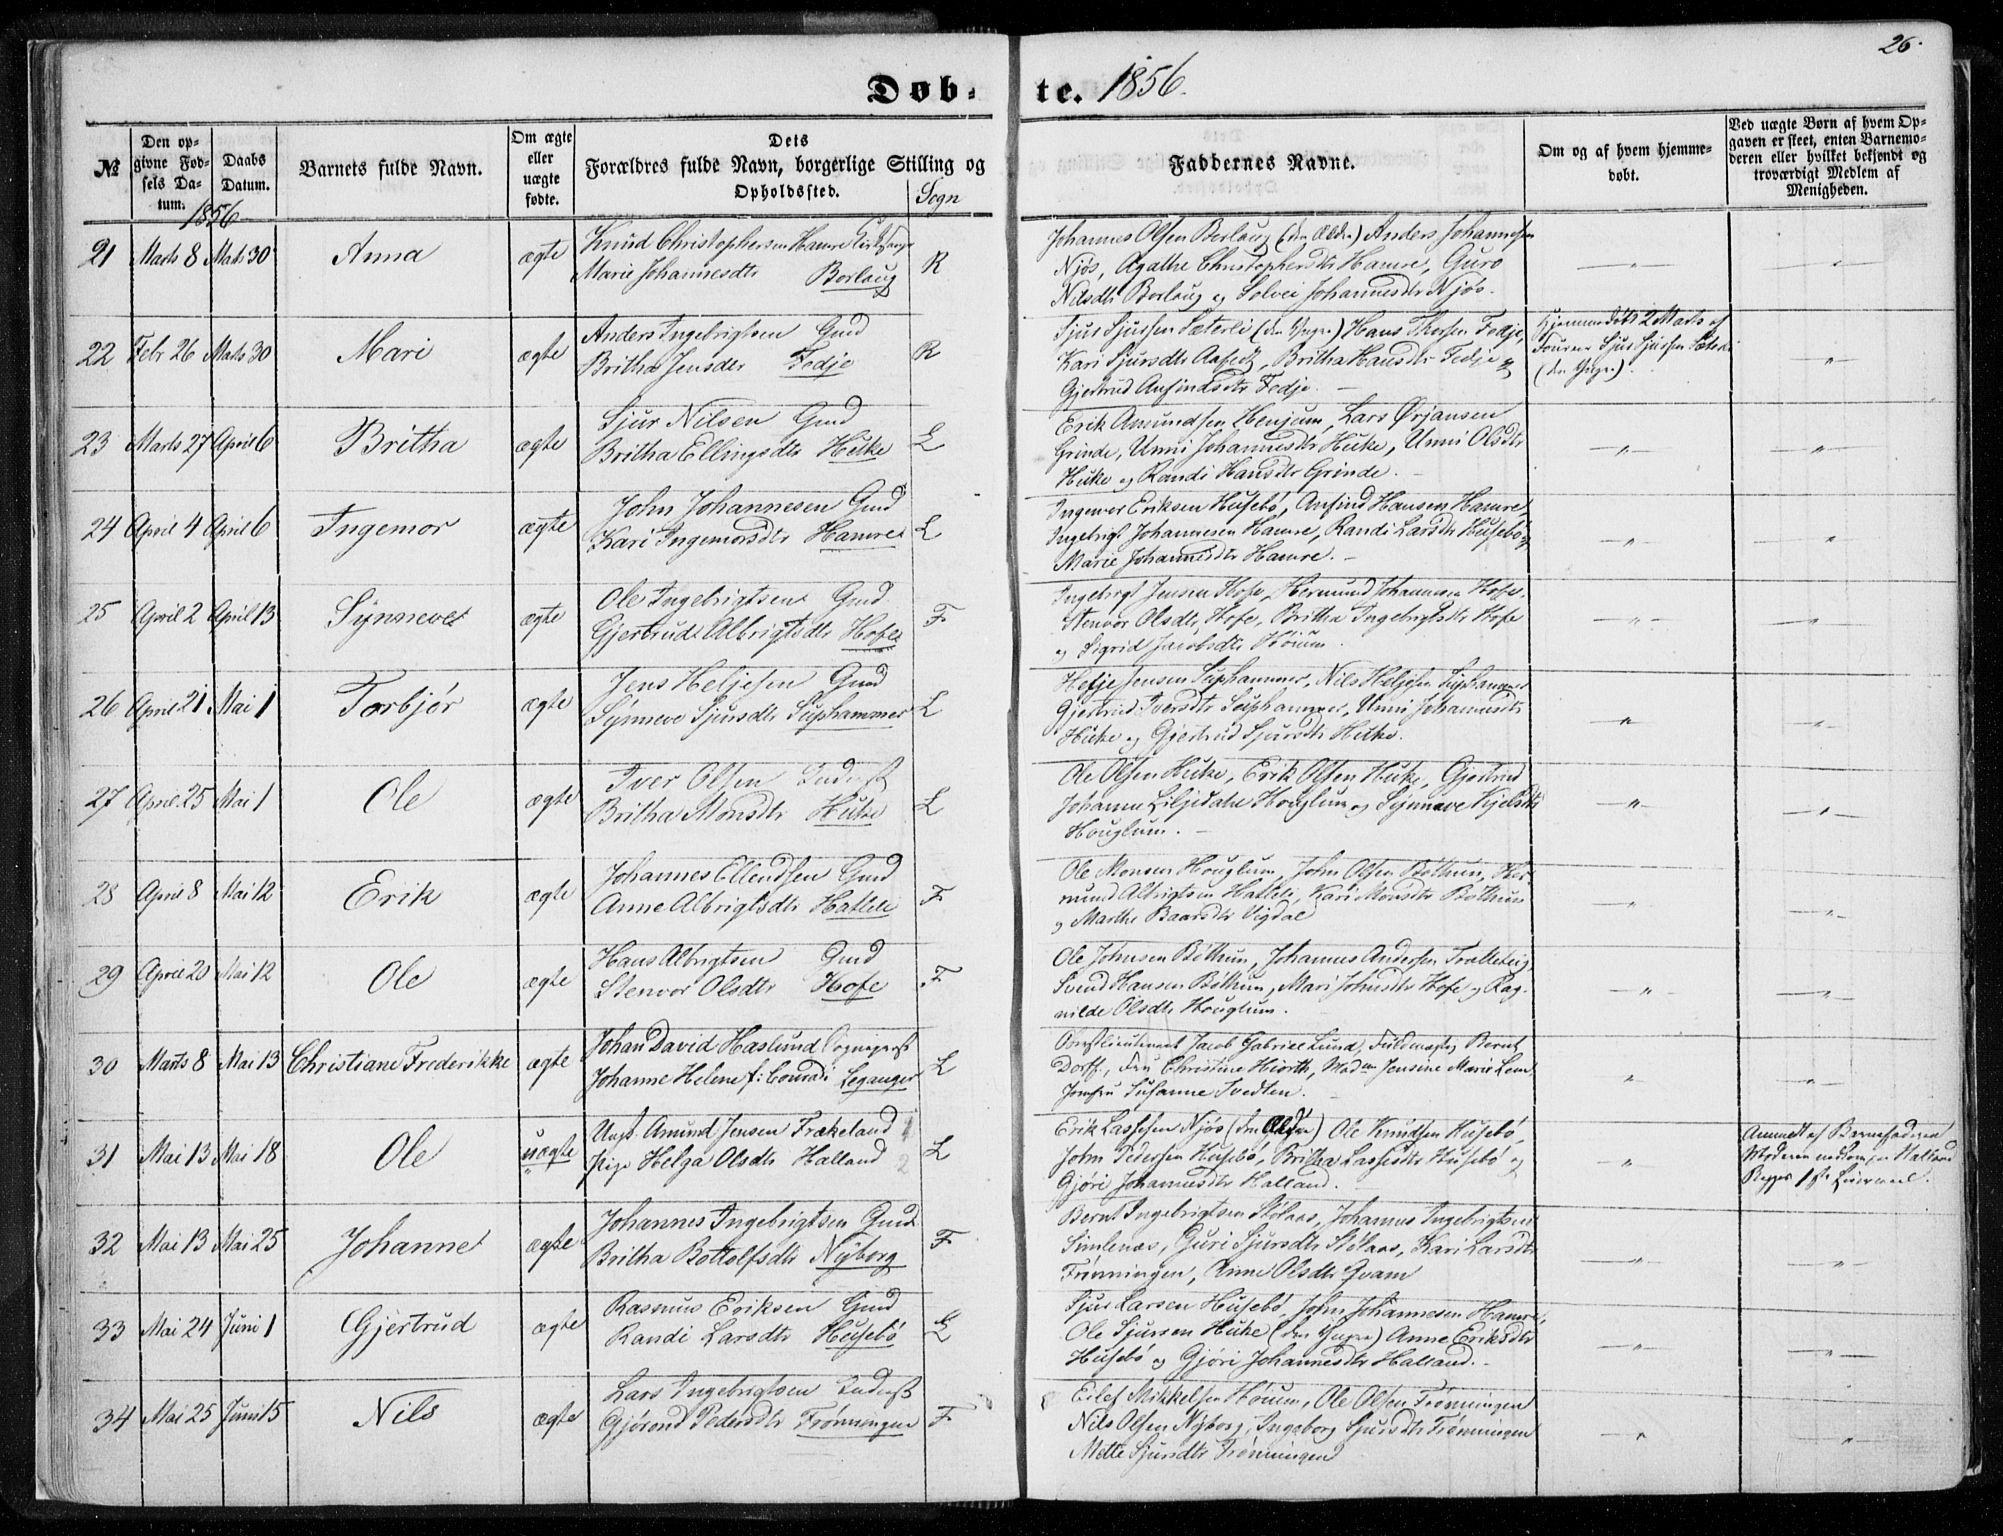 26.
Døb- te. 1856.
№
Den opgivne Fødsels Datum.
Daabs Datum.
Barnets fulde Navn.
Om ægte eller uægte fødte.
Dets Forældres fulde Navn, borgerlige Stilling og Opholdssted.
Sogn
Faddernes Navne.
Om og af hvem hjemmedøbt.
Ved uægte Børn af hvem Opgaven er skeet, enten Barnemoderen eller hvilket bekjendt og troværdigt Medlem af Menigheden.
1856
21 Marts 8 Mats 30 Anna ægte Knud Christophersen Hamre
Marie Johannesdtr Borlaug R
Johannes Olsen Borlaug (den Ældre) Anders Johannesen
Njøs, Agathe Christophersdtr Hamre, Guro
Nilsdtr Borlaug og Solvei Johannesdtr Njøs.
22 Febr 26 Mats 30 Mari ægte Anders Ingebrigtsen Gmd
Britha Jensdtr Fedje R
Sjur Sjursen Sæterli (den Yngre) Hans Thorsen Fedje,
Kari Sjursdtr Aafedt, Britha Hansdtr Fedje og
Gjertrud Anfindsdtr Fedje.
Hjemmedøbt 2 Marts af
Sjur Sjursen Sæterli
(den Yngre).
23 Marts 27 April 6 Britha ægte Sjur Nilsen Gmd
Britha Ellingsdtr Huke L
Erik Amundsen Henjum, Lars Ørjansen
Grinde, Unni Johannesdtr Huke, Unni Olsdtr
Huke og Randi Hansdtr Grinde.
24 April 4 April 6 Ingemor ægte John Johannesen Gmd
Kari Ingemorsdtr Hamre L
Ingemor Eriksen Husebö, Anfind Hansen Hamre
Ingebrigt Johannesen Hamre, Randi Larsdtr Husebö og
Marie Johannesdtr Hamre.
25 April 2 April 13 Synneve ægte Ole Ingebrigtsen Gmd
Gjertrud Albrigtsdtr Hofe F
Ingebrigt Jensen Hofe, Hermund Johannesen Hofe,
Stenvor Olsdtr Hofe, Britha Ingebrigtsdtr Hofe
og Sigrid Jacobsdtr
26 April 21 Mai 1 Torbjør ægte Jens Heljesen Gmd
Synneve Sjursdtr Suphammer L
Helje Jensen Suphammer, Nils Heljesen Suphammer
Gjertrud Iversdtr Suphammer, Unni Johannesdtr
Huke og Gjertrud Sjursdtr Huke.
27 April 25 Mai 1 Ole ægte Iver Olsen Inderst
Britha Monsdtr Huke L
Ole Olsen Huke, Erik Olsen Huke, Gjertrud
Johanne Liljedahl Houglum og Synneve Kjelsdtr
Houglum.
28 April 8 Mai 12 Erik ægte Johannes Ellendsen Gmd
Anne Albrigtsdtr Hatlele F
Ole Monsen Houglum, John Olsen Bøthun, Hermund Albrigtsen Hatlele, Kari Monsdtr Bøthun
og Marthe Baardsdtr Vigdal
29 April 20 Mai 12 Ole ægte Hans Albrigtsen Gmd
Stenvor Olsdtr Hofe F
Ole Johnsen Bøthun, Johannes Andersen Tralleteig,
Svend Hansen Bøthun, Mari Johnsdtr Hofe og Ragnilde Olsdtr Houglum.
30 Marts 8 Mai 13 Christiane Frederikke ægte Johan David Haslund Sognepræst
Johanne Helene f: Conradi Leganger L
Oberstlieutenant Jacob Gabriel Lund, Fuldmægtig Bernt
Dorff, Fru Christine Hiorth, Madm Jensine Marie Lem
Jomfru Susanne Tvedten.
31 Mai 13 Mai 18 Ole uægte Ungk. Amund Jensen Frækeland 1
Pige Helga Olsdtr Halland 2 L
Erik Lassesen Njøs (den Ældre) Ole Knudsen Husebö,
John Pedersen Husebö, Britha Lassesdtr Husebö og
Gjøri Johannesdtr Halland.
Anmeldt af Barnefaderen
32 Mai 13 Mai 25 Johanne ægte Johannes Ingebrigtsen Gmd
Britha Bottolfsdtr Nyborg F
Bernt Ingebrigtsen Stølaas, Johannes Ingebrigtsen
Simlenæs, Guri Sjursdtr Stølaas, Kari Larsdtr
Frønningen, Anne Olsdtr Qvam
33 Mai 24 Juni 1 Gjertrud ægte Rasmus Eriksen Gmd
Randi Larsdtr Husebö L
Sjur Larsen Husebö, John Johannesen Hamre,
Ole Sjursen Huke (den Yngre) Anne Eriksdtr
Husebö og Gjøri Johannesdtr Halland.
34 Mai 25 Juni 15 Nils ægte Lars Ingebrigtsen Inderst
Gjørond Pedersdtr Frønningen F
Eilef Mikkelsen Ole Olsen Frønningen
Nils Olsen Nyborg, Ingeborg Sjursdtr Frønningen
Mette Sjursdtr Frønningen